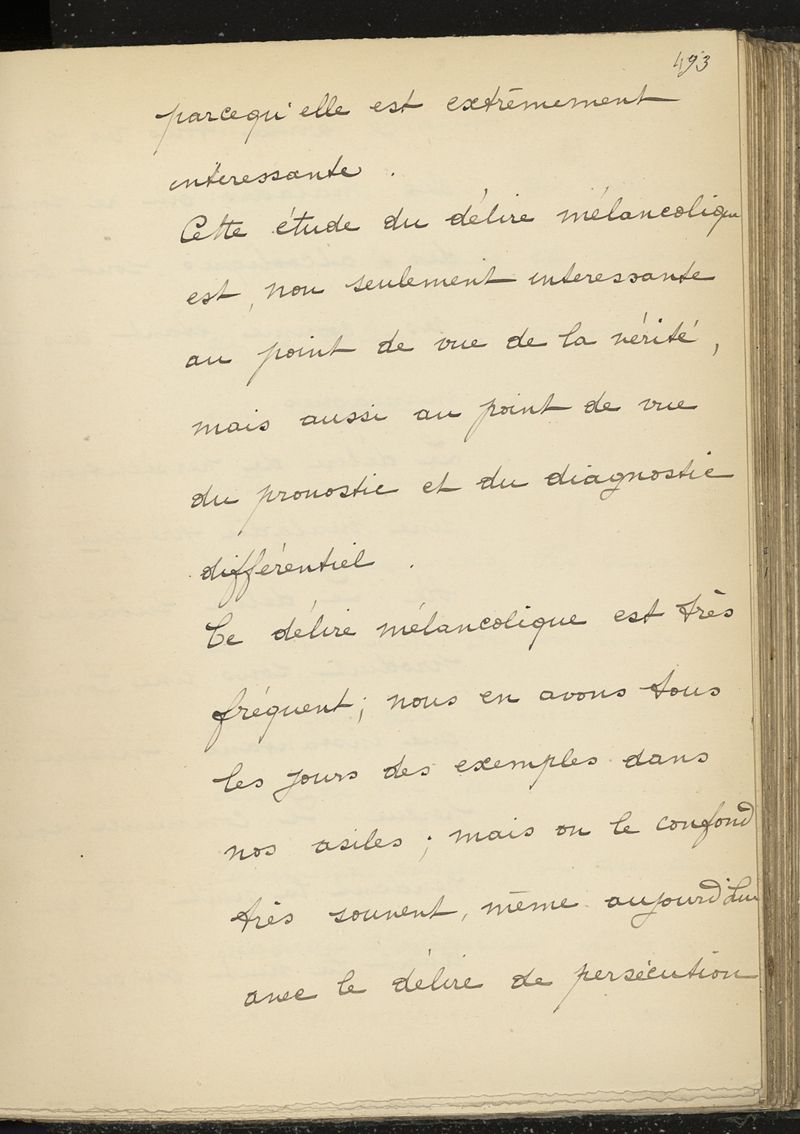 493
parcequ'elle est extrêmement
intéressante.
Cette étude du délire mélancolique
est, non seulement interessante
au point de vue de la vérité,
mais aussi au point de vue
du pronostic et du diagnostic
différentiel.
Ce délire mélancolique est très
fréquent; nous en avons tous
les jours des exemples dans
nos asiles; mais on le confond
très souvent, même aujourd'hui
avec le délire de persécution